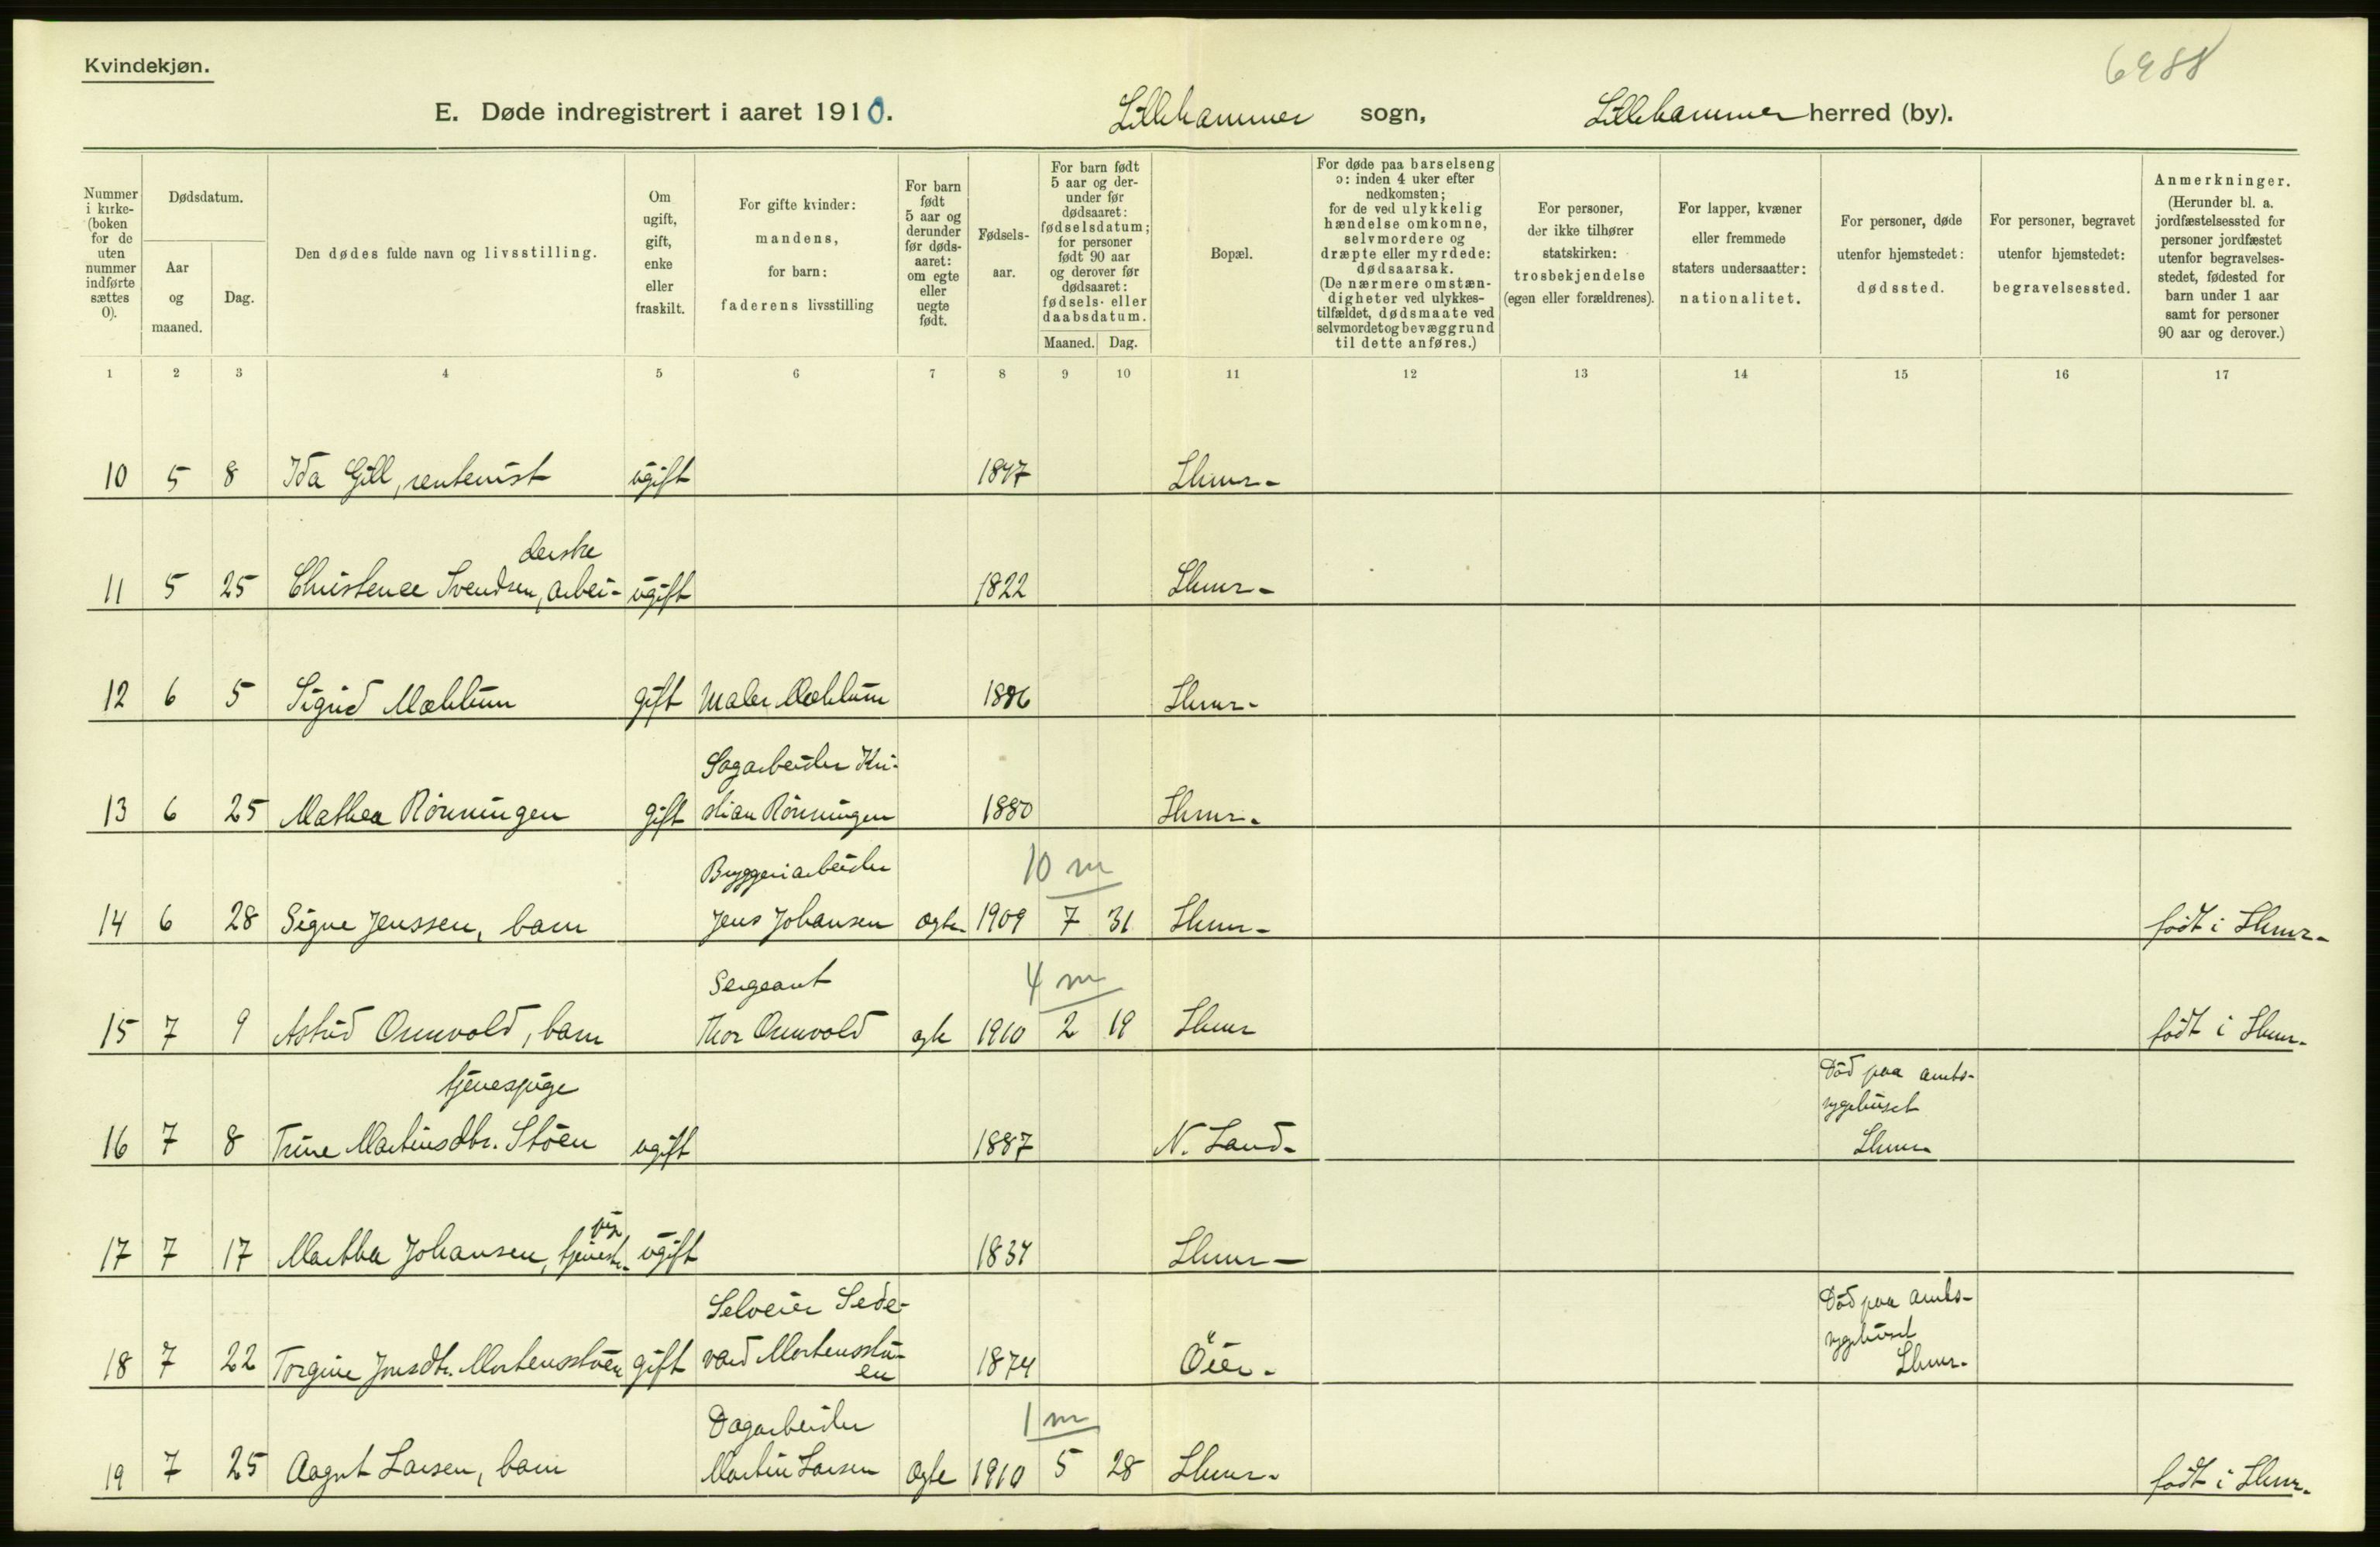 Kvindekjøn.
6988
E. Døde indregistrert i aaret 1910. Lillehammer sogn, Lillehammer herred (by).
Nummer i kirke- (boken for de uten nummer indførte sættes 0).
Dødsdatum.
Aar og maaned.
Dag.
Den dødes fulde navn og livsstilling.
Om ugift, gift, enke eller fraskilt.
For gifte kvinder: mandens, for barn: faderens livsstilling
For barn født 5 aar og derunder før døds- aaret: om egte eller uegte født.
Fødsels- aar.
For barn født 5 aar og der- under før dødsaaret: fødselsdatum; for personer født 90 aar og derover før dødsaaret: fødsels- eller daabsdatum.
Maaned. Dag.
Bopæl.
For døde paa barselseng ɔ: inden 4 uker efter nedkomsten; for de ved ulykkelig hændelse omkomne, selvmordere og dræpte eller myrdede: dødsaarsak. (De nærmere omstæn- digheter ved ulykkes- tilfældet, dødsmaate ved selvmordet og bevæggrund til dette anføres.)
For personer, der ikke tilhører statskirken: trosbekjendelse (egen eller forældrenes).
For lapper, kvæner eller fremmede staters undersaatter: nationalitet.
For personer, døde utenfor hjemstedet: dødssted.
For personer, begravet utenfor hjemstedet: begravelsessted.
Anmerkninger. (Herunder bl. a. jordfæstelsessted for personer jordfæstet utenfor begravelses- stedet, fødested for barn under 1 aar samt for personer 90 aar og derover.)
1 2 3 4 5 6 7 8 9 10 11 12 13 14 15 16 17
10 5 8 Ida Gill, rentenist ugift 1847 Lhmr-
derske
11 5 25 Christence Svendsen, arbei- ugift 1822 Lhmr-
12 6 5 Sigrid Mæhlum gift Maler Mæhlum 1886 Lhmr-
Sagarbeider Kri-
13 6 25 Mathea Rönningen gift stian Rönningen 1880 Lhmr-
Bryggeriarbeider 10 m
14 6 28 Signe Jenssen, barn Jens Johansen ægte 1909 7 31 Lhmr- födt i Lhmr-
Sergeant 4 m
15 7 9 Astrid Ornvold, barn Thor Ornvold ægte 1910 2 19 Lhmr födt i Lhmr-
tjenespige Död paa amts-
sygehuset
16 7 8 Trine Martinsdtr. Stöen ugift 1887 N. Land- Lhmr
pige
17 7 17 Marthe Johansen, tjeneste- ugift 1834 Lhmr-
Selveier Sede- Död paa amts-
sygehuset
18 7 22 Torgine Jonsdtr. Mortensstuen gift vard Mortensstu- 1874 Öier- Lhmr-
en
Dagarbeider 1 m
19 7 25 Aagot Larsen, barn Martin Larsen ægte 1910 5 28 Lhmr- födt i Lhmr-